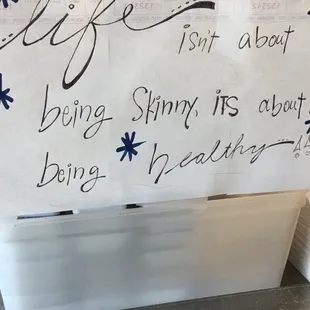 life isn't about
being Skinny, iTS about
being healthy